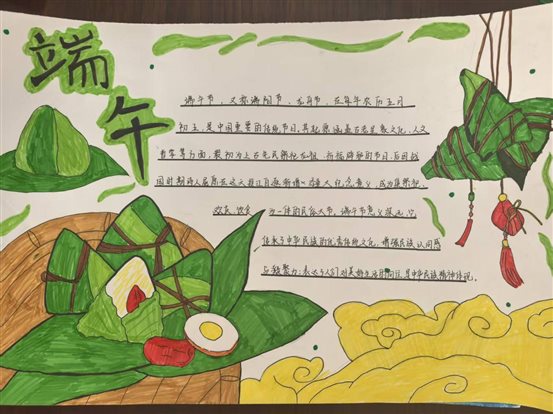 端午
端午节，又称端阳节、龙舟节，在每年农历五月
初五，是中国重要的传统节日，其起源涵盖古老星象文化、人文
哲学等方面，最初为上古先民祭祀龙祖、祈福辟邪的节日，后因战
国时期诗人屈原在这天投江自
成为集祭祀、
欢庆、饮食为一体的民俗大节，端午节意义深远，它
传承了中华民族的优秀传统文化，增强民族认同感
与凝聚力，表达了人们对美好生活的向往，是中华民族精神体现。